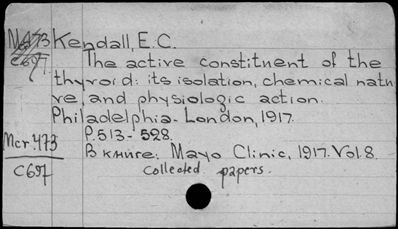 М473 Kendall, E. C.
C697
The active constituent of the
thyroid: its isolation, chemical natu
re, and physiologic action.
Philadelphia- London, 1917.
P. 513- 528.
Mcr.473
C697
В книге: Mayo Clinic, 1917. Vol. 8.
Collected papers.